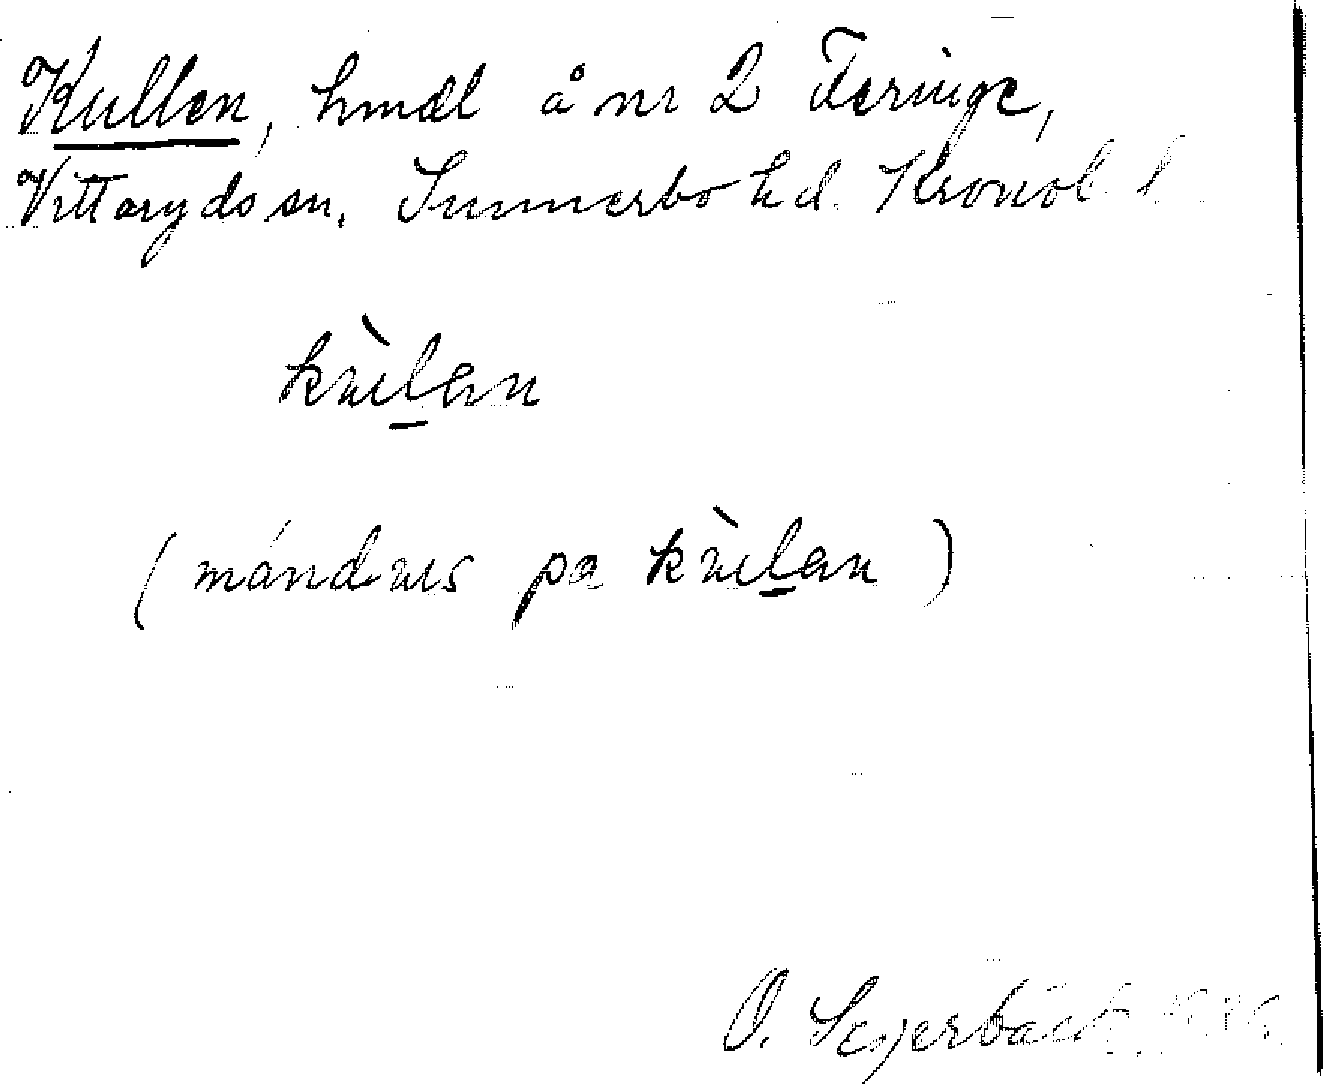 Kullen, hmdl å nr 2 Feringe,
Vittaryds sn. Sunnerbo hd. Kronob. l
kùlan
(mándus pa kùlan)
O. Sejerbäck